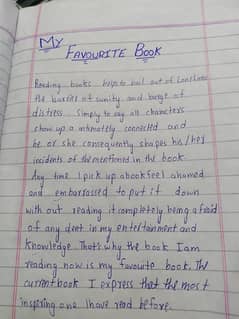 My
FAVOURITE BOOK
Reading books helps to bail out of Loneliness
the barrier of sanity and barge of
distress. Simply to say all characters
show up a intimately connected and
he or she consequently shapes his/her
incidents of the mentioned in the book.
Any time I pick up a book feel ahamed
and embarrassed to put it down
with out reading it completely being afraid
of any dent in my entertainment and
knowledge. That's why the book I am
reading now is my favourite book. The
current book I express that the most
inspring one I have read before.